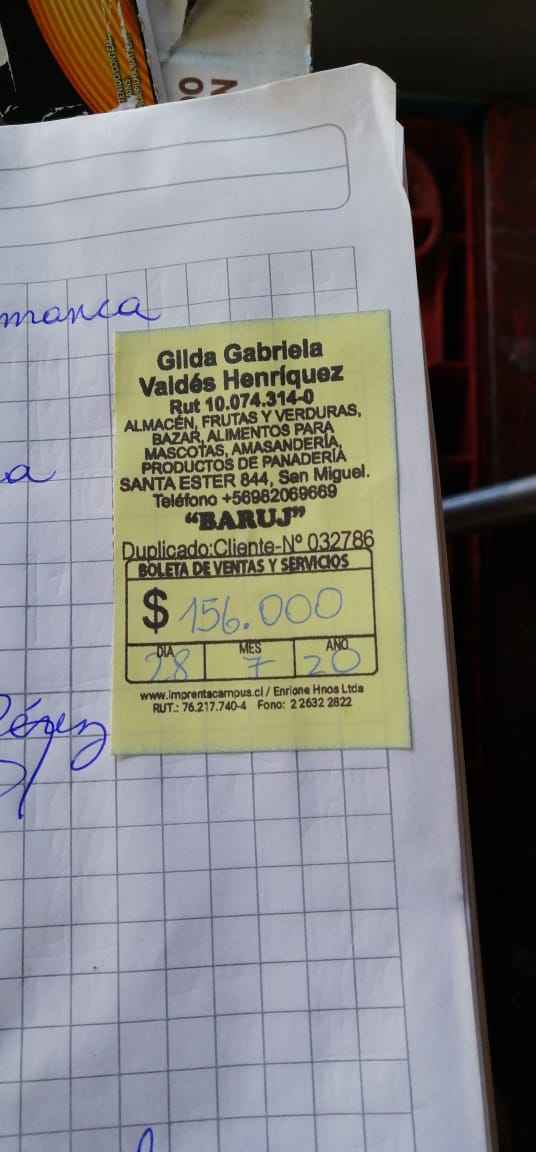 manca
a
Gilda Gabriela
Valdés Henríquez
Rut 10.074.314-0
ALMACÉN, FRUTAS Y VERDURAS,
BAZAR, ALIMENTOS PARA
MASCOTAS, AMASANDERÍA,
PRODUCTOS DE PANADERÍA
SANTA ESTER 844, San Miguel.
Teléfono +56982069669
"BARUJ"
Duplicado:Cliente-Nº 032786
BOLETA DE VENTAS Y SERVICIOS
$ 156.000
DIA MES AÑO
28 7 20
www.imprentacampus.cl / Enrione Hnos Ltda
RUT.: 76.217.740-4 Fono: 2 2632 2822
Pérez